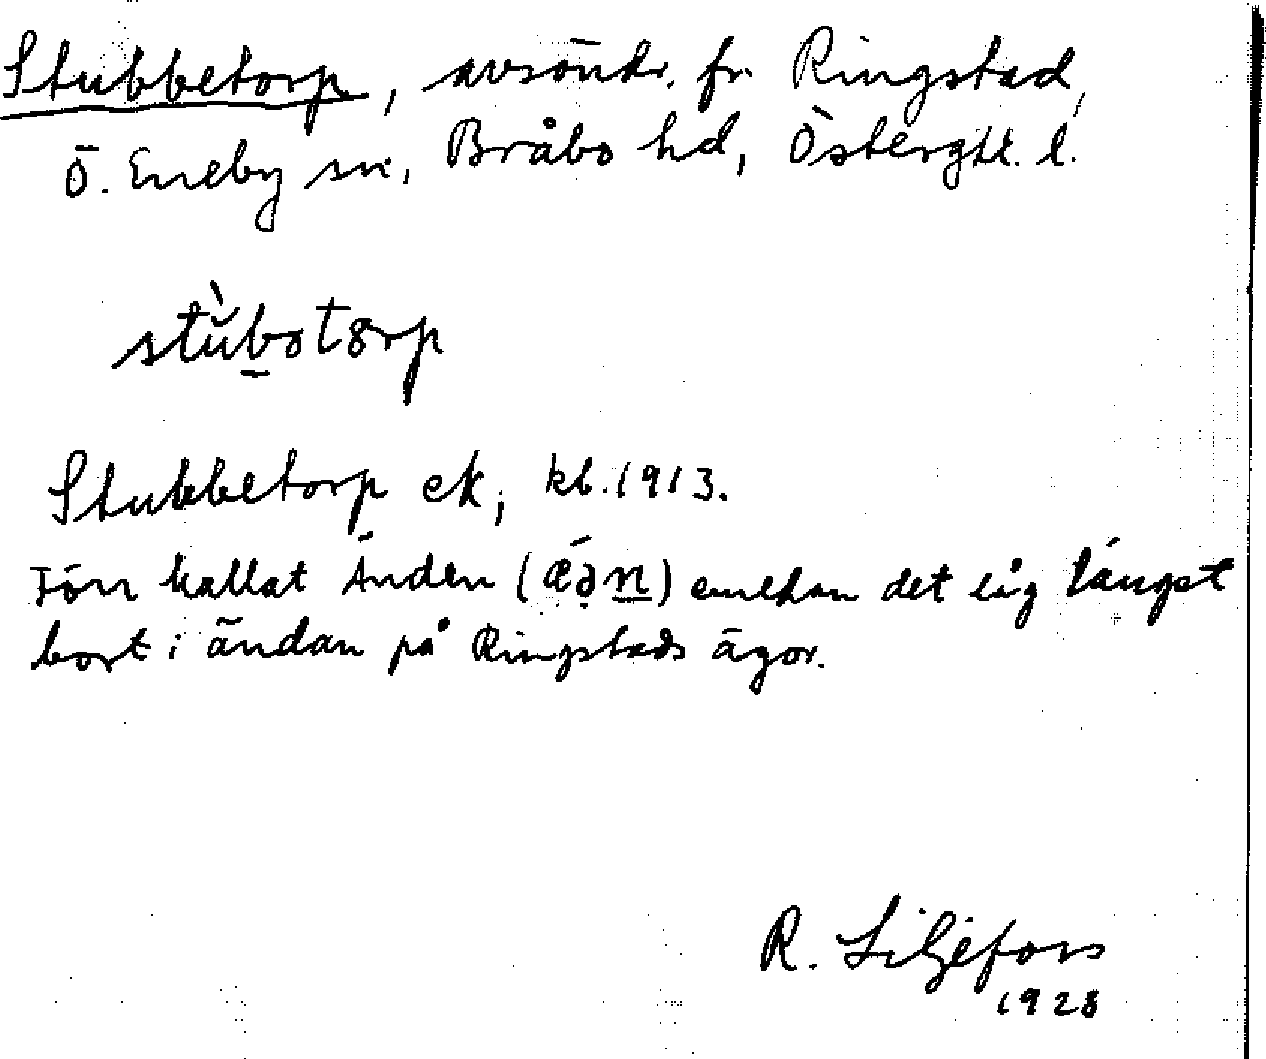 Stubbetorp, avsöndr. fr. Ringstad,
Ö. Eneby sn, Bråbo hd, Östergtl. l.
stùbotorp
Stubbetorp ek, kb. 1913.
Förr kallat Änden (ǽən) emedan det låg längst
bort i ändan på Ringstads ägor.
R. Liljefors
1928